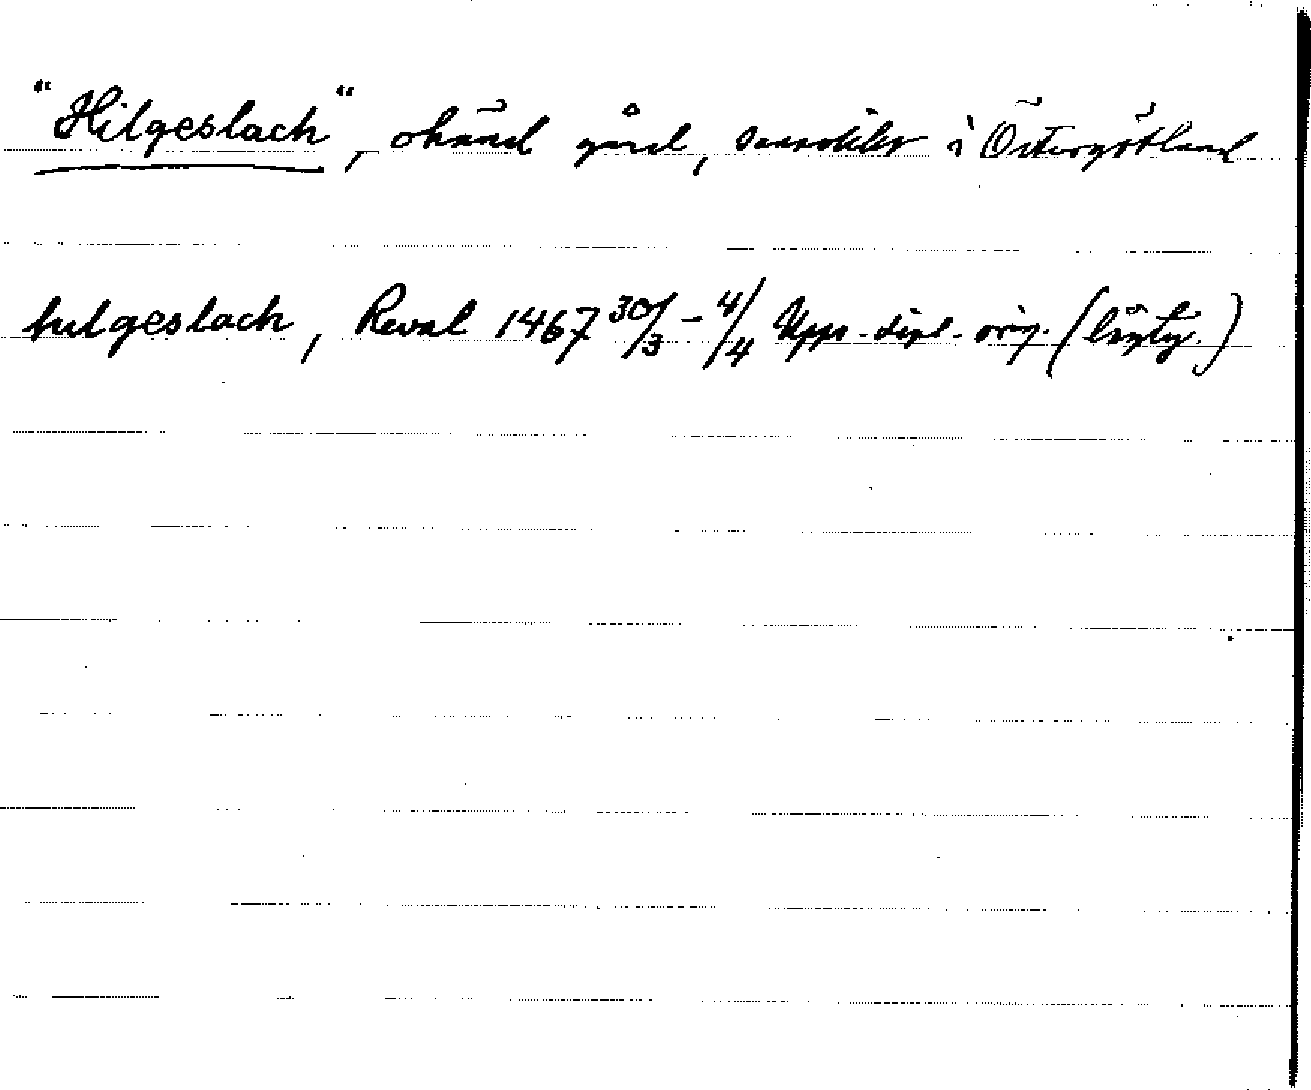 "Hilgeslach", okänd gård, sannolikt i Östergötland
hilgeslach, Reval 1467 30/3 - 4/4 Upps. dipl. orig. (lågty.)